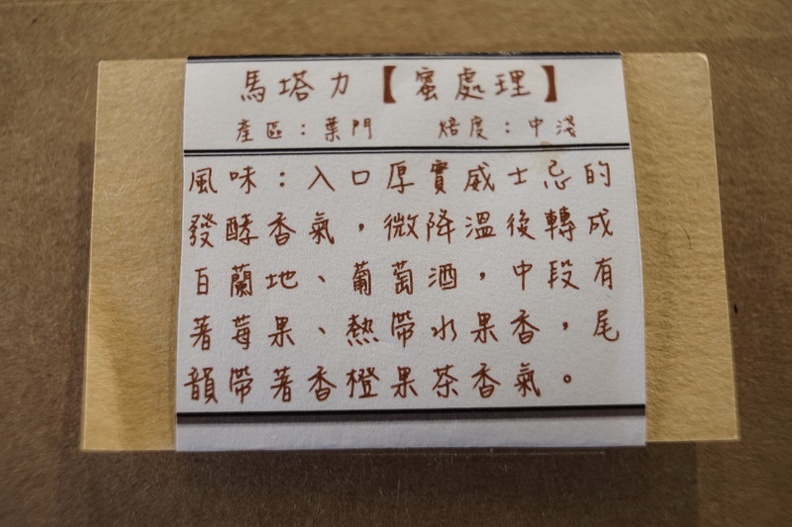 馬塔力【蜜處理】
產區：葉門 焙度：中淺
風味：入口厚實威士忌的
發酵香氣，微降溫後轉成
百蘭地、葡萄酒，中段有
著莓果、熱帶水果香，尾
韻帶著香橙果茶香氣。